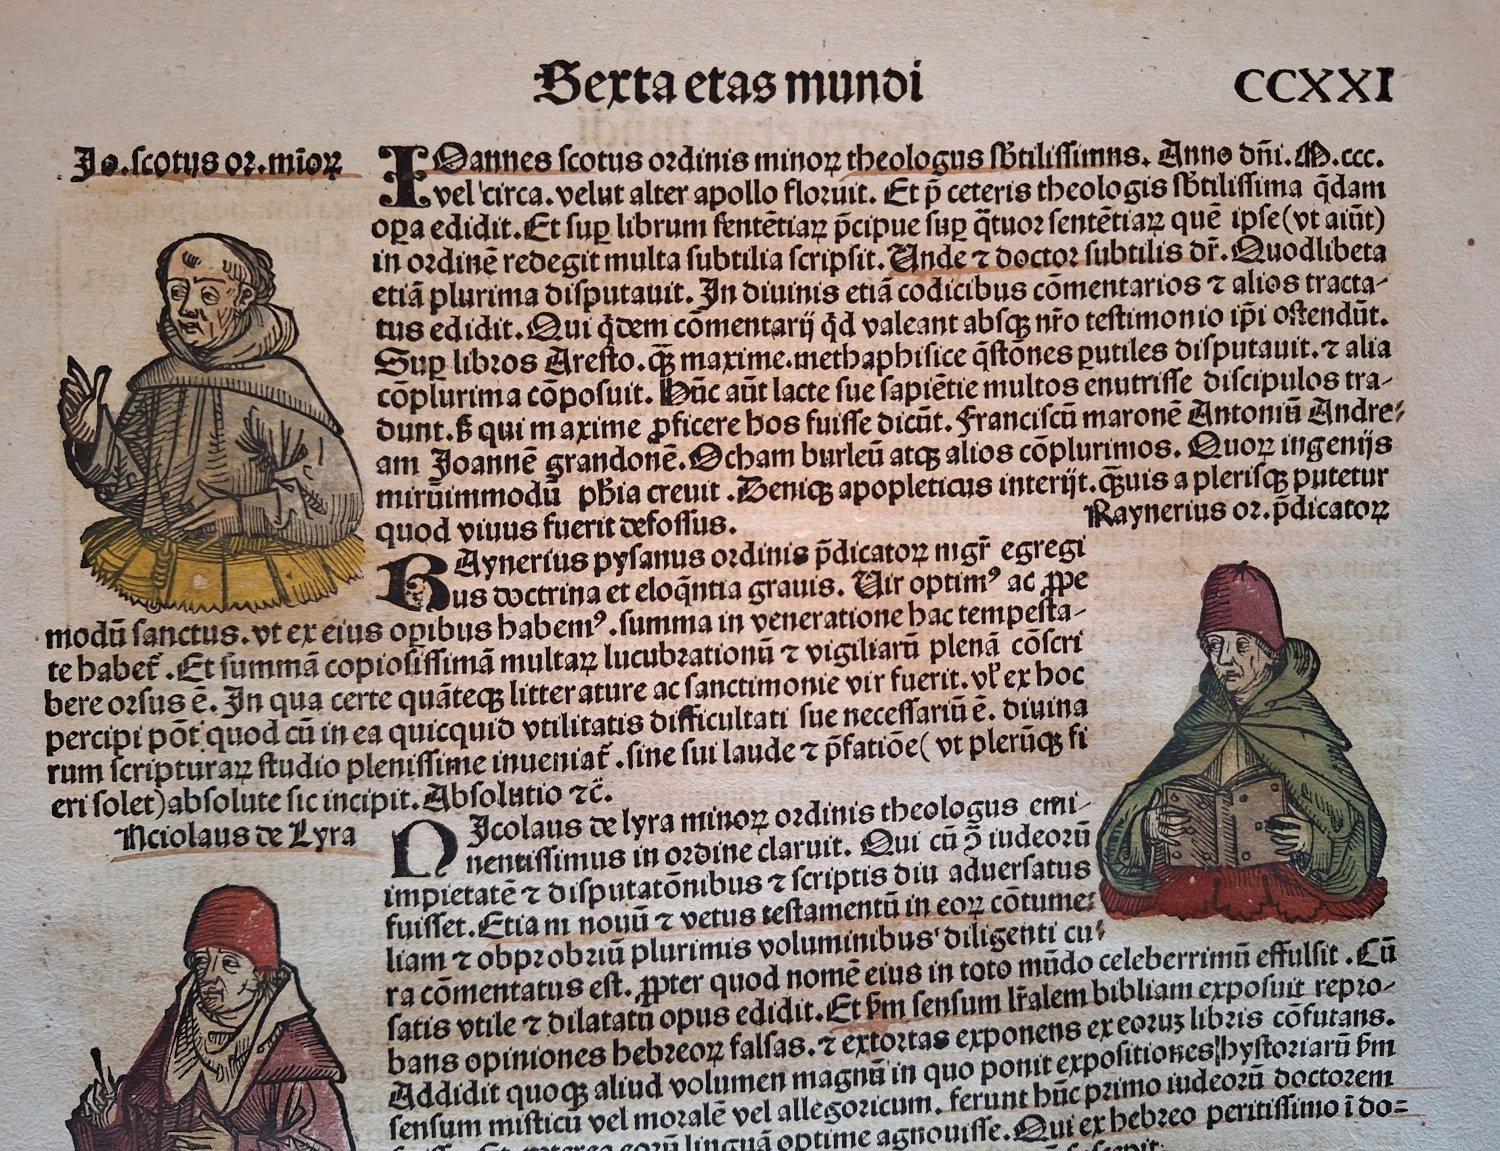 Sexta etas mundi
CCXXI
Jo.scotus or.mīoꝝ
IOannes scotus ordinis minoꝝ theologus sb̄tilissimns. Anno dn̄i. M.ccc.
vel circa. velut alter apollo floruit. Et p̄ ceteris theologis sb̄tilissima q̄dam
oꝑa edidit. Et suꝑ librum sentētiaꝝ p̄cipue suꝑ q̄tuor sentētiaꝝ quē ipse (vt aiūt)
in ordinē redegit multa subtilia scripsit. Unde ⁊ doctor subtilis dr̄. Quodlibeta
etiā plurima disputauit. In diuinis etiā codicibus cōmentarios ⁊ alios tracta-
tus edidit. Qui q̇dem cōmentarij q̇d valeant absqꝫ nr̄o testimonio ip̄i ostendūt.
Suꝑ libros Aresto. qꝫ maxime. methaphisice q̄stōnes ꝑutiles disputauit. ⁊ alia
cōplurima cōposuit. Hūc aūt lacte sue sapiētie multos enutrisse discipulos tra-
dunt. s̄ qui maxime ꝓficere hos fuisse dicūt. Franciscū maronē Antoniū Andre-
am Joannē grandonē. Ocham burleū atqꝫ alios cōplurimos. Quoꝝ ingenijs
mirūimmodū ph̄ia creuit. Deniqꝫ apopleticus interijt. qꝫuis a plerisqꝫ putetur
quod viuus fuerit defossus.
Raynerius or. p̄dicatoꝝ
RAynerius pysanus ordinis p̄dicatoꝝ nigr̄ egregi
us doctrina et eloq̄ntia grauis. Uir optimꝰ ac ꝓpe
modū sanctus. vt ex eius oꝑibus habemꝰ. summa in veneratione hac tempesta-
te habet̄. Et summā copiosissimā multaꝝ lucubrationū ⁊ vigiliarū plenā cōscri
bere orsus ē. In qua certe quāteqꝫ litterature ac sanctimonie vir fuerit. vl̄ ex hoc
percipi pōt quod cū in ea quicquid vtilitatis difficultati sue necessariū ē. diuina
rum scripturaꝝ studio plenissime inueniat̄. sine sui laude ⁊ p̄fatiōe( vt plerūqꝫ fi
eri solet) absolute sic incipit. Absolutio ⁊c̄.
Nciolaus de Lyra
NIcolaus de lyra minoꝝ ordinis theologus emi-
nentissimus in ordine claruit. Qui cū ꝯ̄ iudeorū
impietatē ⁊ disputatōnibus ⁊ scriptis diu aduersatus
fuisset. Etiam nouū ⁊ vetus testamentū in eoꝝ cōtume-
liam ⁊ obprobriū plurimis voluminibus diligenti cu-
ra cōmentatus est. ꝓpter quod nomē eius in toto mūdo celeberrimū effulsit. Cū
satis vtile ⁊ dilatatū opus edidit. Et ẜm sensum lr̄alem bibliam exposuit repro-
bans opiniones hebreoꝝ falsas. ⁊ extortas exponens ex eoruꝫ libris cōfutans.
Addidit quoqꝫ aliud volumen magnū in quo ponit expositiones hystoriarū ẜm
sensum misticū vel moralē vel allegoricum. ferunt hūc primo iudeorū doctorem
Qui ex hebreo peritissimo ī do-
eorū linguā optime agnouisse.